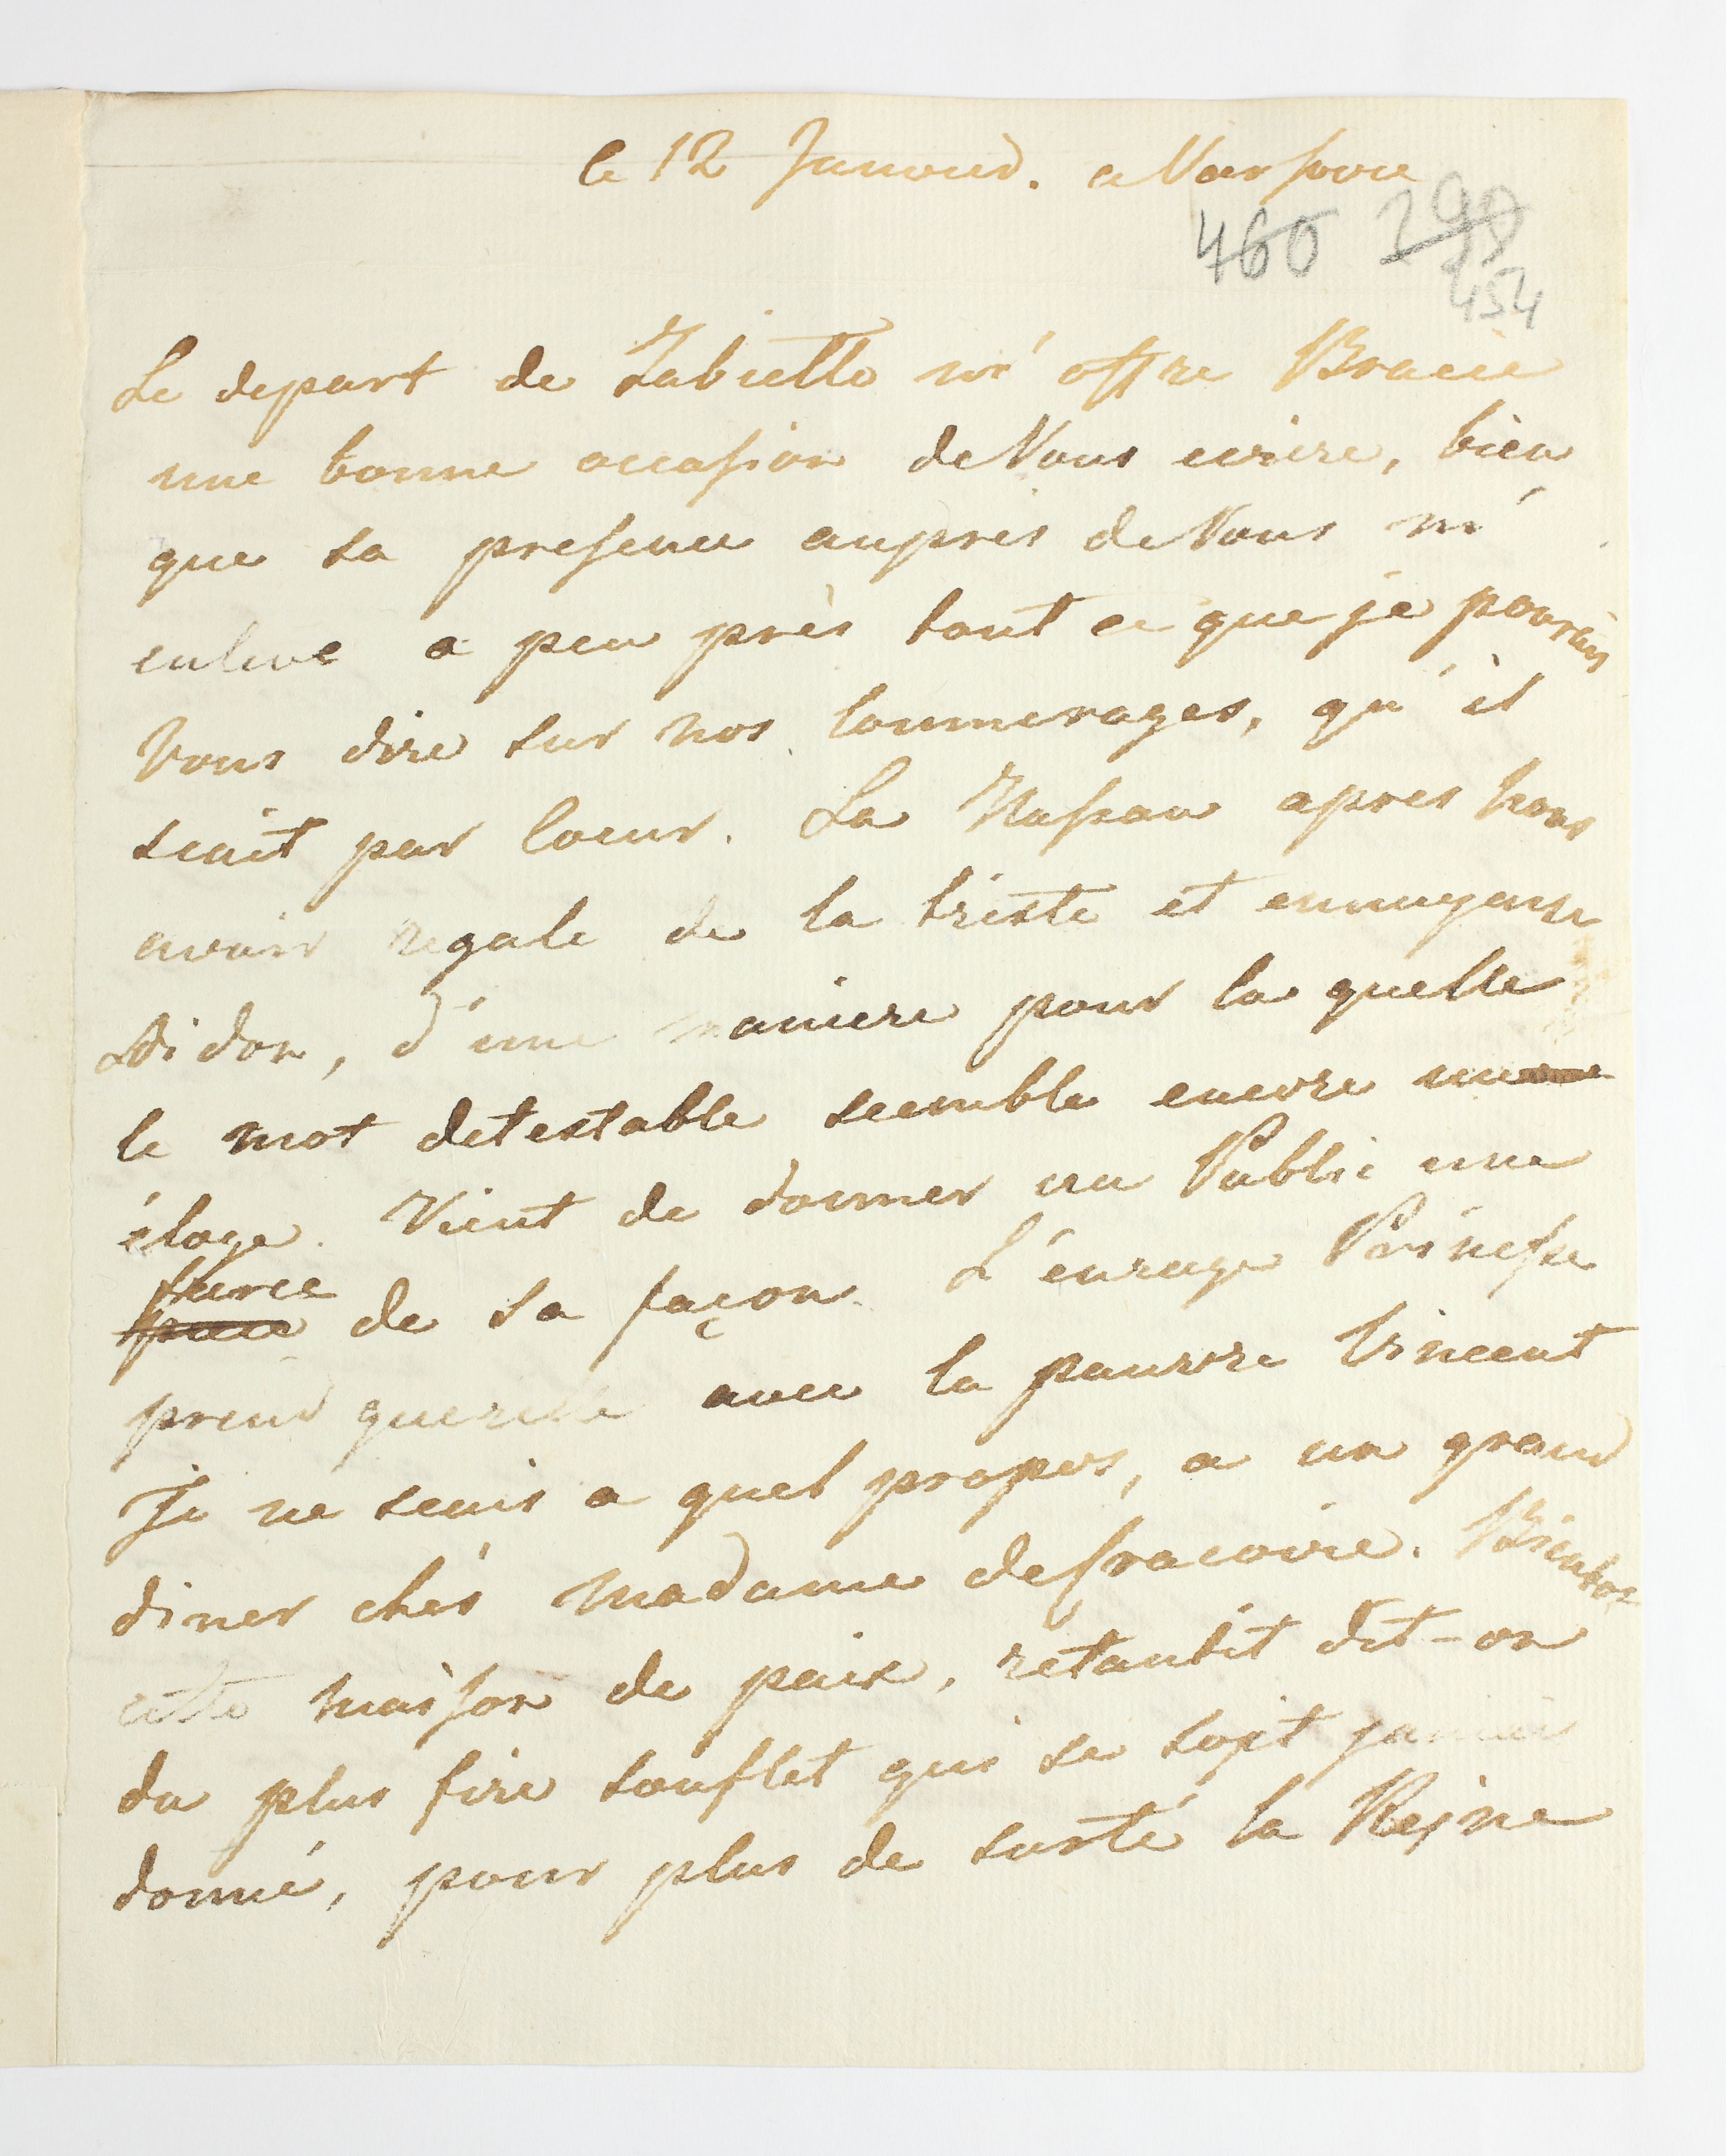 le 12 Januvier. a Varsovie
460 298
454
Le depart de Zabiello m' offre Bracie
une bonne occasion de Vous ecrire, bien
que sa presence aupres de Vous m'
enleve a peu près tout ce que je pourais
Vous dire sur nos commerages, qu'il
scait par coeur. La Nassau apres nous
avoir regale de la triste et ennuyeuse
Didon, d'une maniere pour la quelle
le mot detestable seemble encore un
éloge. Vient de donner au Public une
farce
de sa façon. L'enrage Prinesse
prend querelle avec la pauvre Vincent
Je ne scais a quel propos, a un grand
diner chés Madame de Cracovie. Bientot
cette maison de paix, retantit dit-on
du plus fire souflet qui se soit jamais
donné, pour plus de surté la Rejne